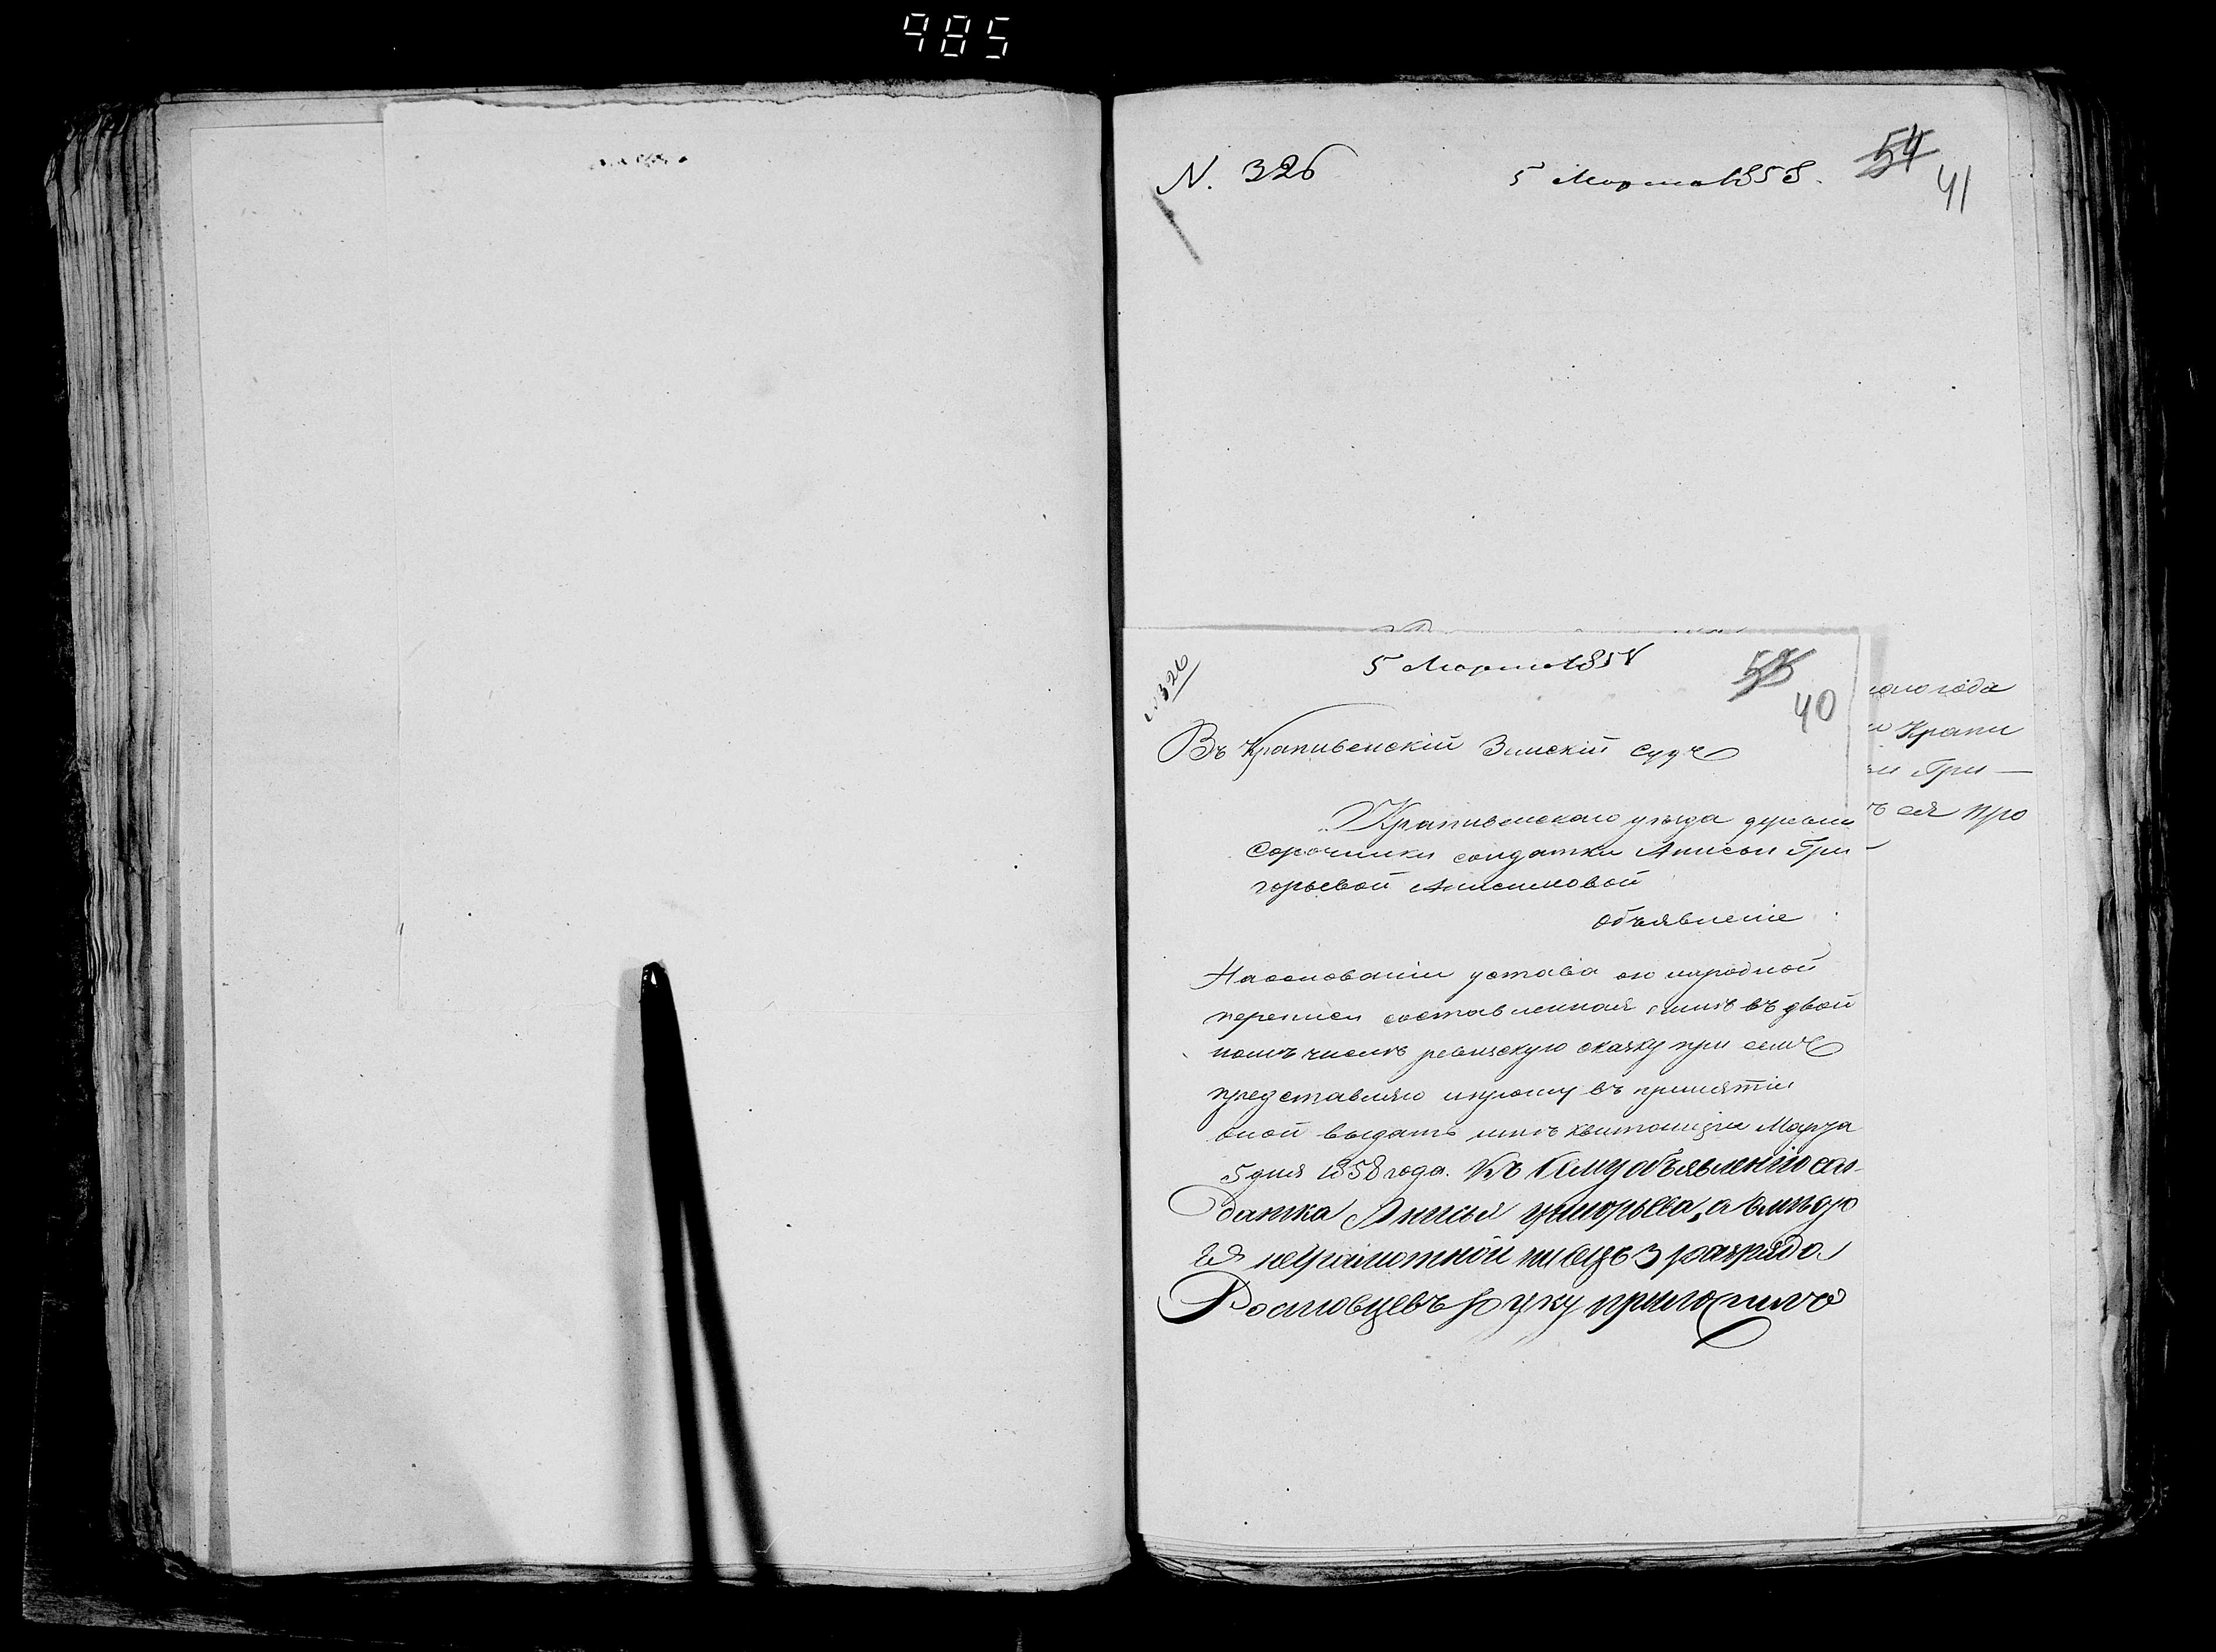 985
N. 326 5 Марта 1858. 54
41
N 326 5 Марта 1858 53
40
Въ Крапивенскій Земскій Судъ
Крапивенскаго уѣзда деревни
Сорочинки солдатки Анисьи Гри-
горьевой Анисимовой
Объявленіе
На основаніи устава о народной
переписи составленная мною въ двой
номъ числѣ ревизскую сказку при семъ
представляю и прошу въ принятіи
оной выдать мнѣ квитанцію Марта
5 дня 1858 года. Къ сему объявленію сол-
датка Анисья Григорьева, а вмѣсто
ея неграмотной писецъ 3 разряда
Ростовцевъ руку приложилъ
года
Крапи
Гри—
ея про